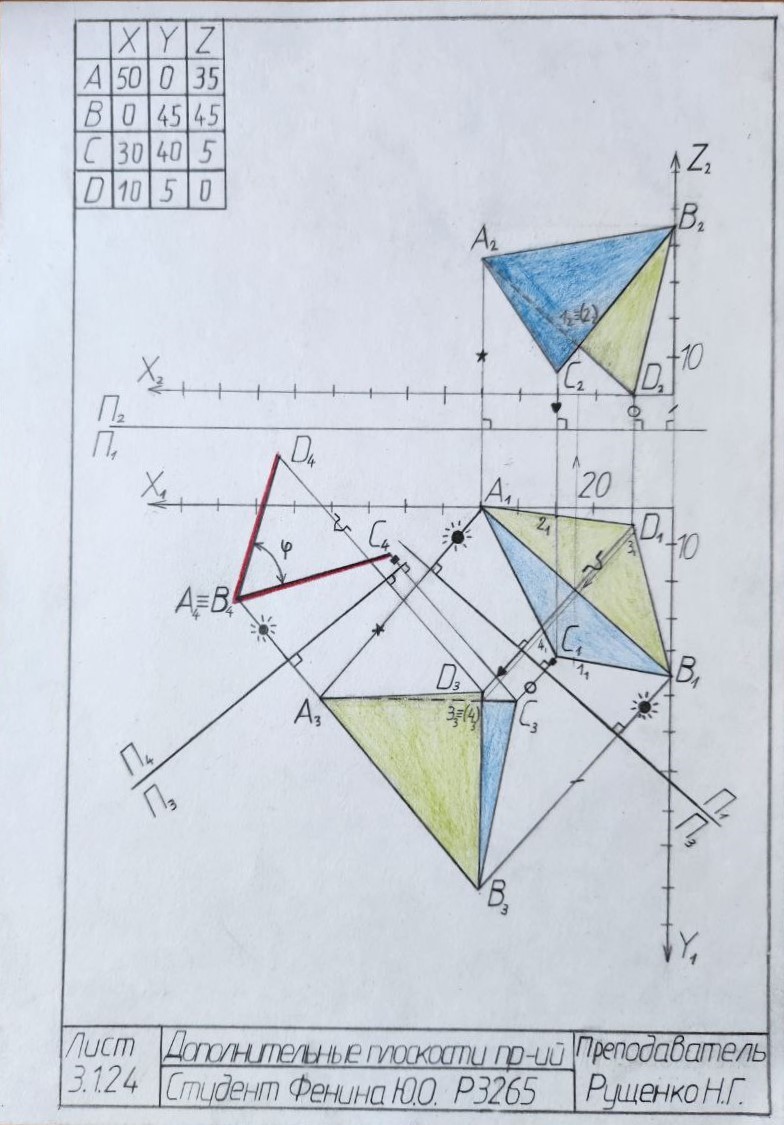 X Y Z
A 50 0 35
B 0 45 45
C 30 40 5
D 10 5 0
Z₂
B₂
A₂
1₂≡(2₂)
10
X₂
C₂
D₂
П₂
П₁
D₄
X₁
A₁
20
2₁
D₁
C₄
10
3₁
φ
A₄≡B₄
4₁
C₁
1₁
B₁
D₃
A₃
3₃≡(4₃)
C₃
П₄
П₃
П₁
П₃
B₃
Y₁
Лист
3.1.24
Дополнительные плоскости пр-ий
Студент Фенина Ю.О. P3265
Преподаватель
Рущенко Н.Г.